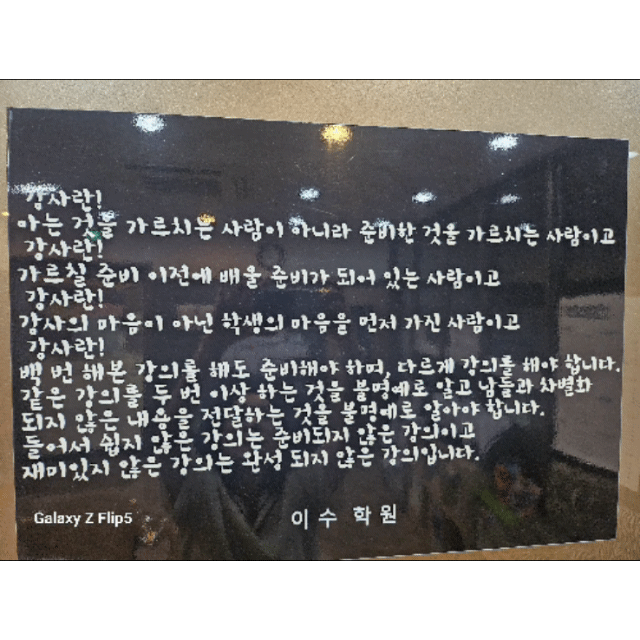 강사란!
아는 것을 가르치는 사람이 아니라 준비한 것을 가르치는 사람이고
강사란!
가르칠 준비 이전에 배울 준비가 되어 있는 사람이고
강사란!
강사의 마음이 아닌 학생의 마음을 먼저 가진 사람이고
강사란!
백 번 해본 강의를 해도 준비해야 하며, 다르게 강의를 해야 합니다.
같은 강의를 두 번 이상 하는 것을 불명예로 알고 남들과 차별화
되지 않은 내용을 전달하는 것을 불명예로 알아야 합니다.
들어서 쉽지 않은 강의는 준비되지 않은 강의이고
재미있지 않은 강의는 완성 되지 않은 강의입니다.
Galaxy Z Flip5
이 수 학원